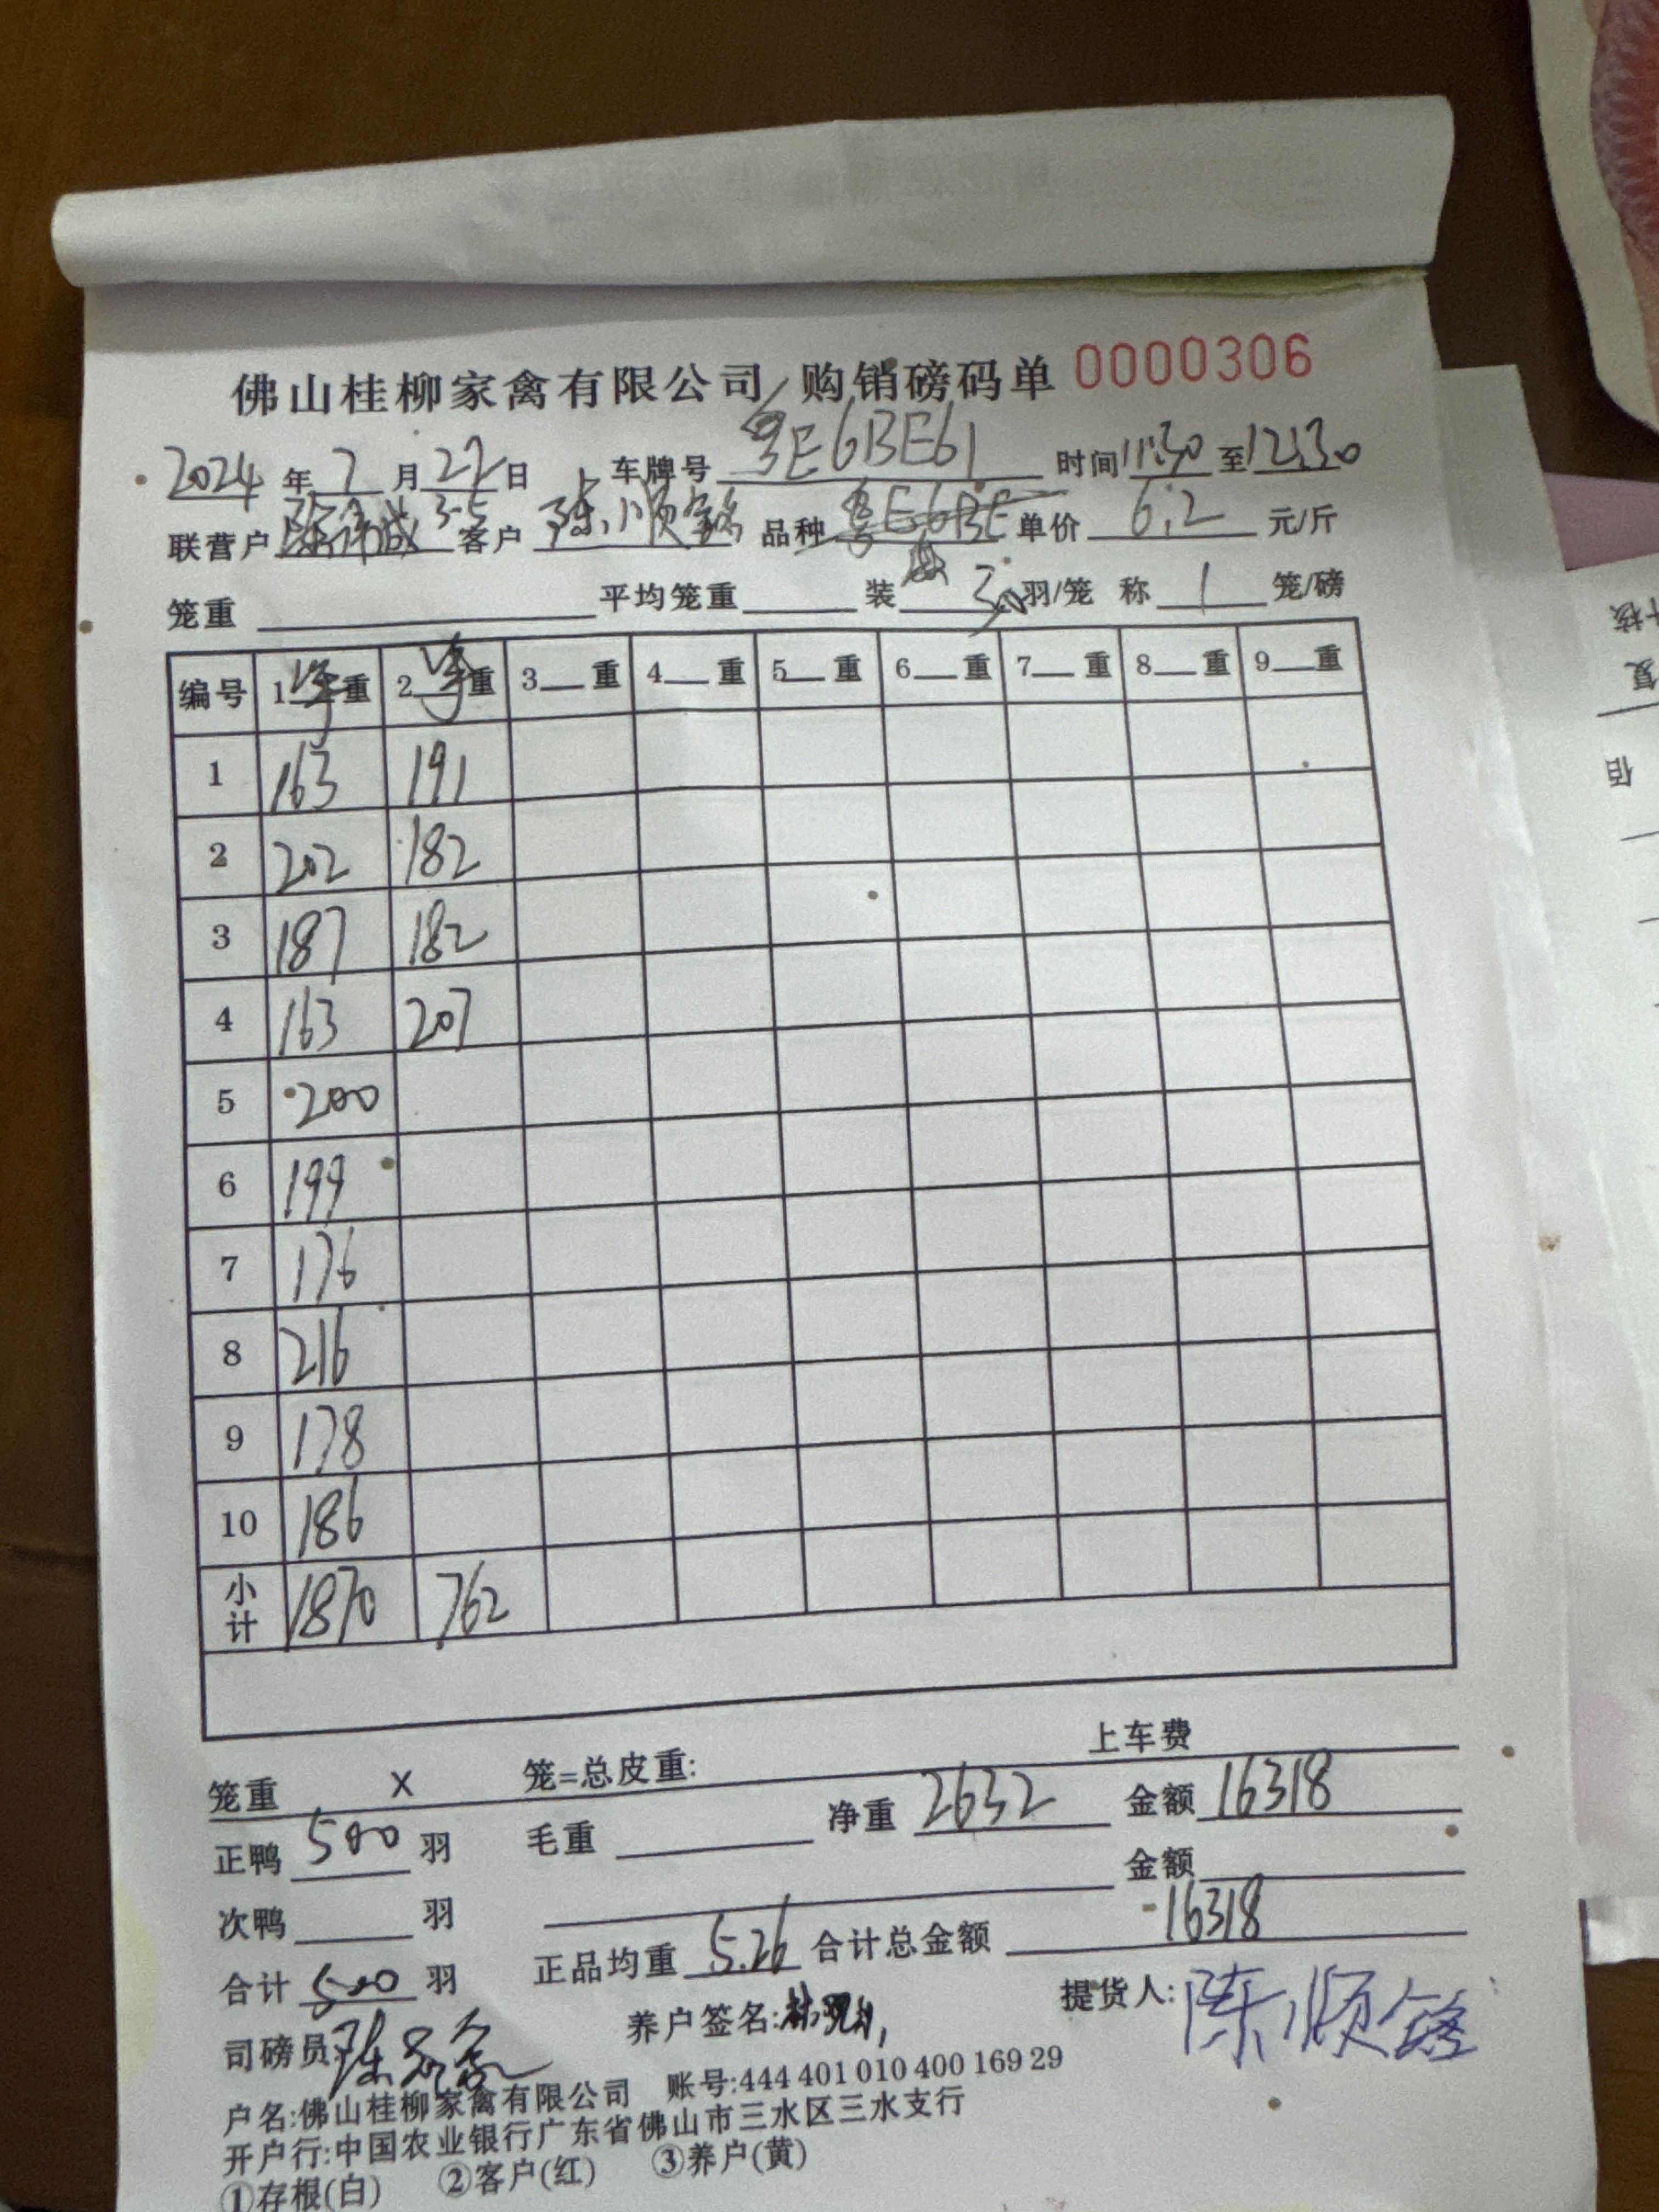 佛山桂柳家禽有限公司 购销磅码单 0000306
2024年7月22日 车牌号 粤E6BE61 时间11:30至12:30
联营户 客户 陈顺铭 品种 单价 6.2 元/斤
笼重 平均笼重 装 30 羽/笼 称 1 笼/磅
编号 1净重 2净重 3重 4重 5重 6重 7重 8重 9重
1 163 191
2 202 182
3 187 182
4 163 207
5 200
6 199
7 176
8 216
9 178
10 186
小计 1870 762
上车费
笼重 X 笼=总皮重:
正鸭 500 羽 毛重 净重 2632 金额 16318
次鸭 羽 金额
合计 500 羽 正品均重 5.26 合计总金额 16318
司磅员: 养户签名: 提货人: 陈顺铭
户名:佛山桂柳家禽有限公司 账号:444 401 010 400 169 29
开户行:中国农业银行广东省佛山市三水区三水支行
①存根(白) ②客户(红) ③养户(黄)
核
复
佰